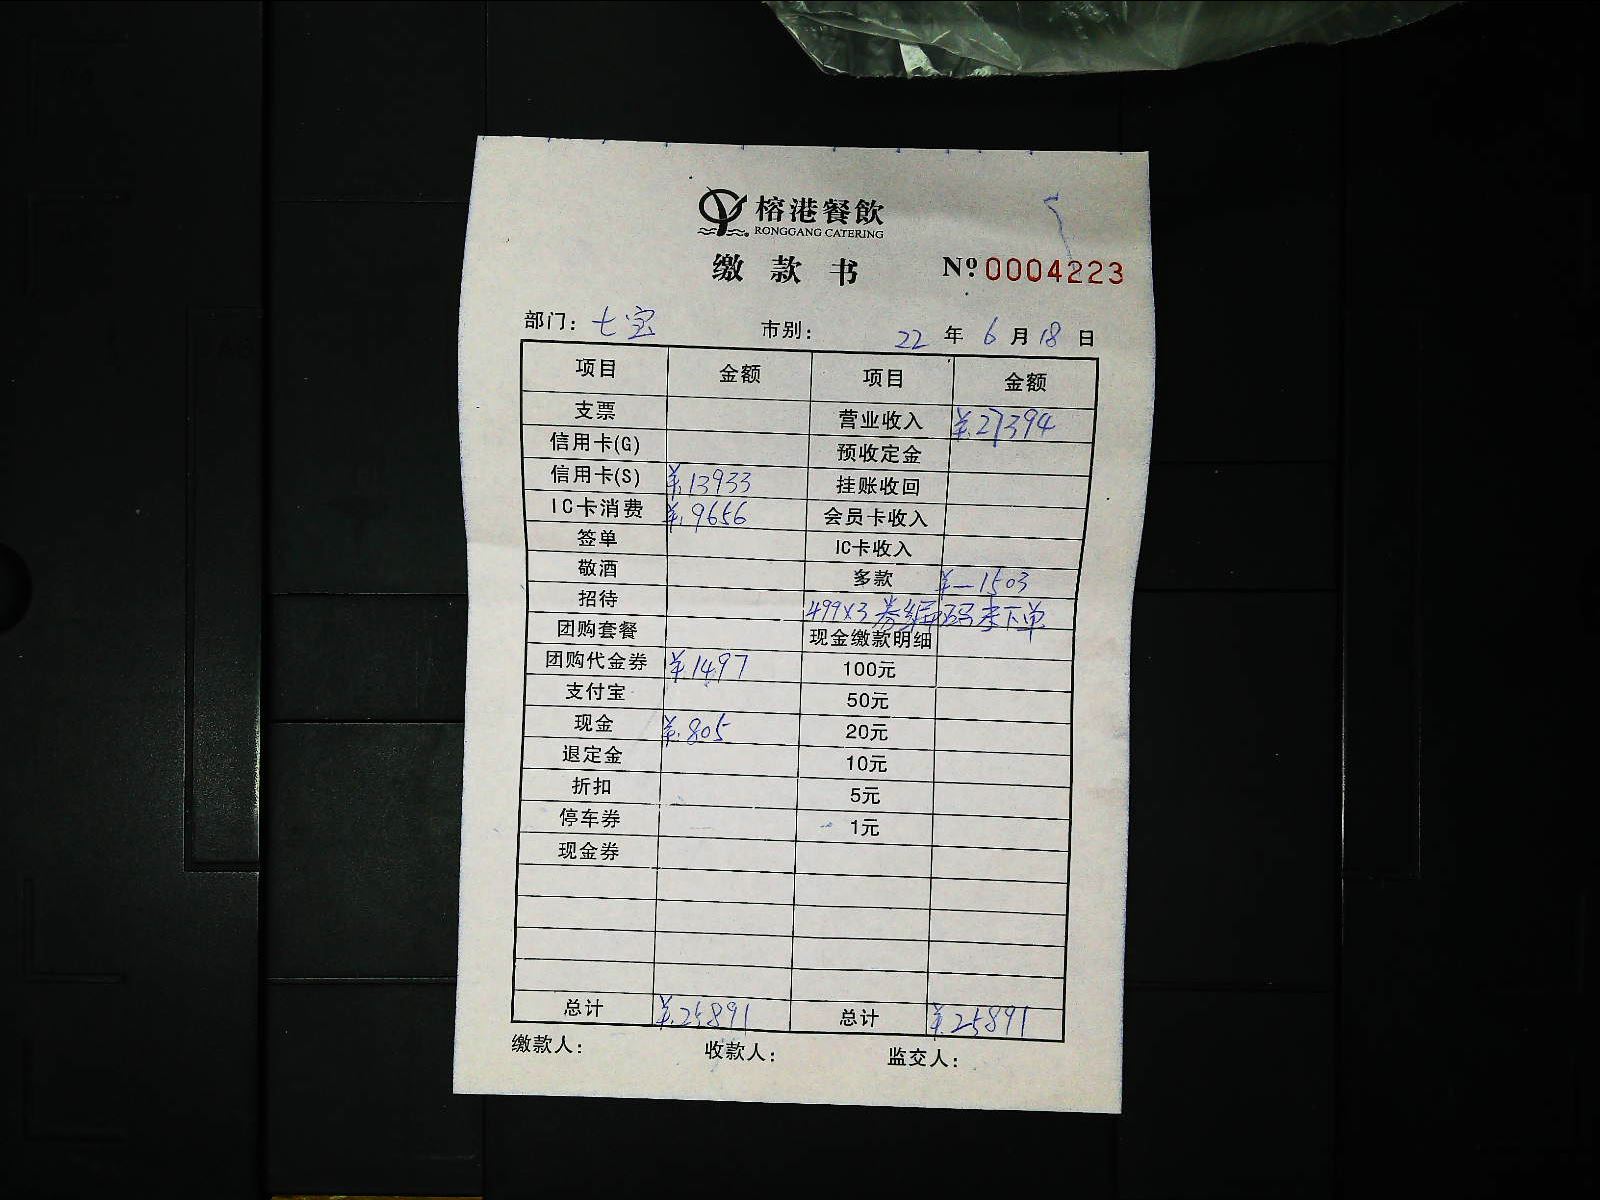 榕港餐飲
RONGGANG CATERING
缴款书 Nº 0004223
部门: 七宝 市别: 22 年 6 月 18 日
项目 金额 项目 金额
支票 营业收入 ¥.27394
信用卡(G) 预收定金
信用卡(S) ¥.13933 挂账收回
IC卡消费 ¥.9656 会员卡收入
签单 IC卡收入
敬酒 多款 ¥-1503
招待 499x3 券 码未下单
团购套餐 现金缴款明细
团购代金券 ¥.1497 100元
支付宝 50元
现金 ¥.805 20元
退定金 10元
折扣 5元
停车券 1元
现金券
总计 ¥.25891 总计 ¥.25891
缴款人: 收款人: 监交人: